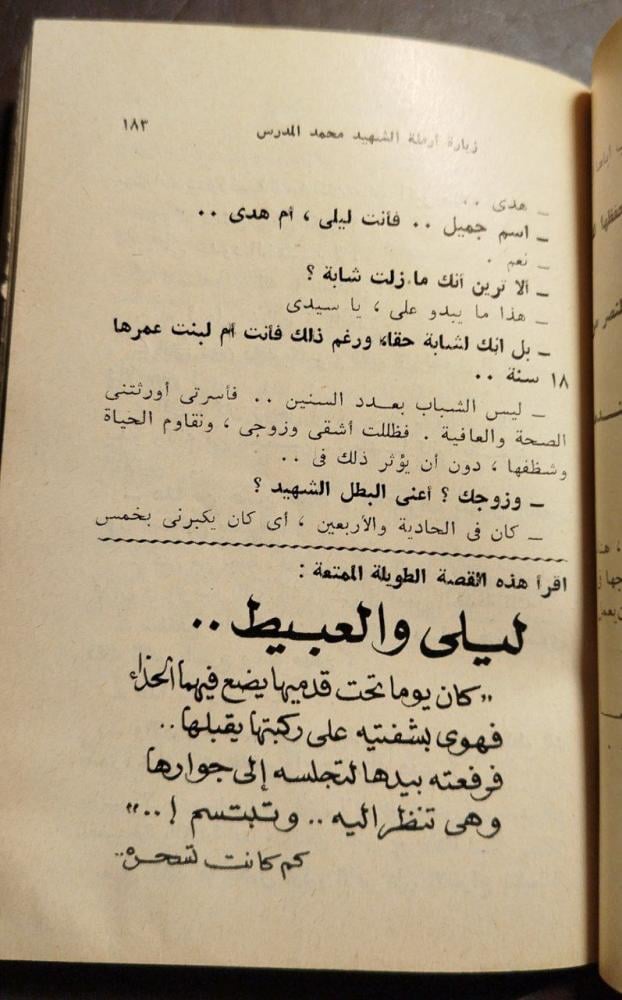 زيارة أرملة الشهيد محمد المدرس ١٨٣
ــ هدى ..
ــ اسم جميل .. فأنت ليلى ، أم هدى ..
ــ نعم .
ــ ألا ترين أنك ما زلت شابة ؟
ــ هذا ما يبدو على ، يا سيدى
ــ بل انك لشابة حقا، ورغم ذلك فأنت أم لبنت عمرها
١٨ سنة ..
ــ ليس الشباب بعدد السنين .. فأسرتى أورثتنى
الصحة والعافية . فظللت أشقى وزوجى ، ونقاوم الحياة
وشظفها ، دون أن يؤثر ذلك فى ..
ــ وزوجك ؟ أعنى البطل الشهيد ؟
ــ كان فى الحادية والأربعين ، أى كان يكبرنى بخمس
اقرأ هذه القصة الطويلة الممتعة :
ليلى والعبيط ..
"كان يوما تحت قدميها يضع فيهما الحذاء
فهوى بشفتيه على ركبتها يقبلها ..
فرفعته بيدها لتجلسه إلى جوارها
وهى تنظر اليه .. وتبتسم ! .."
كم كانت